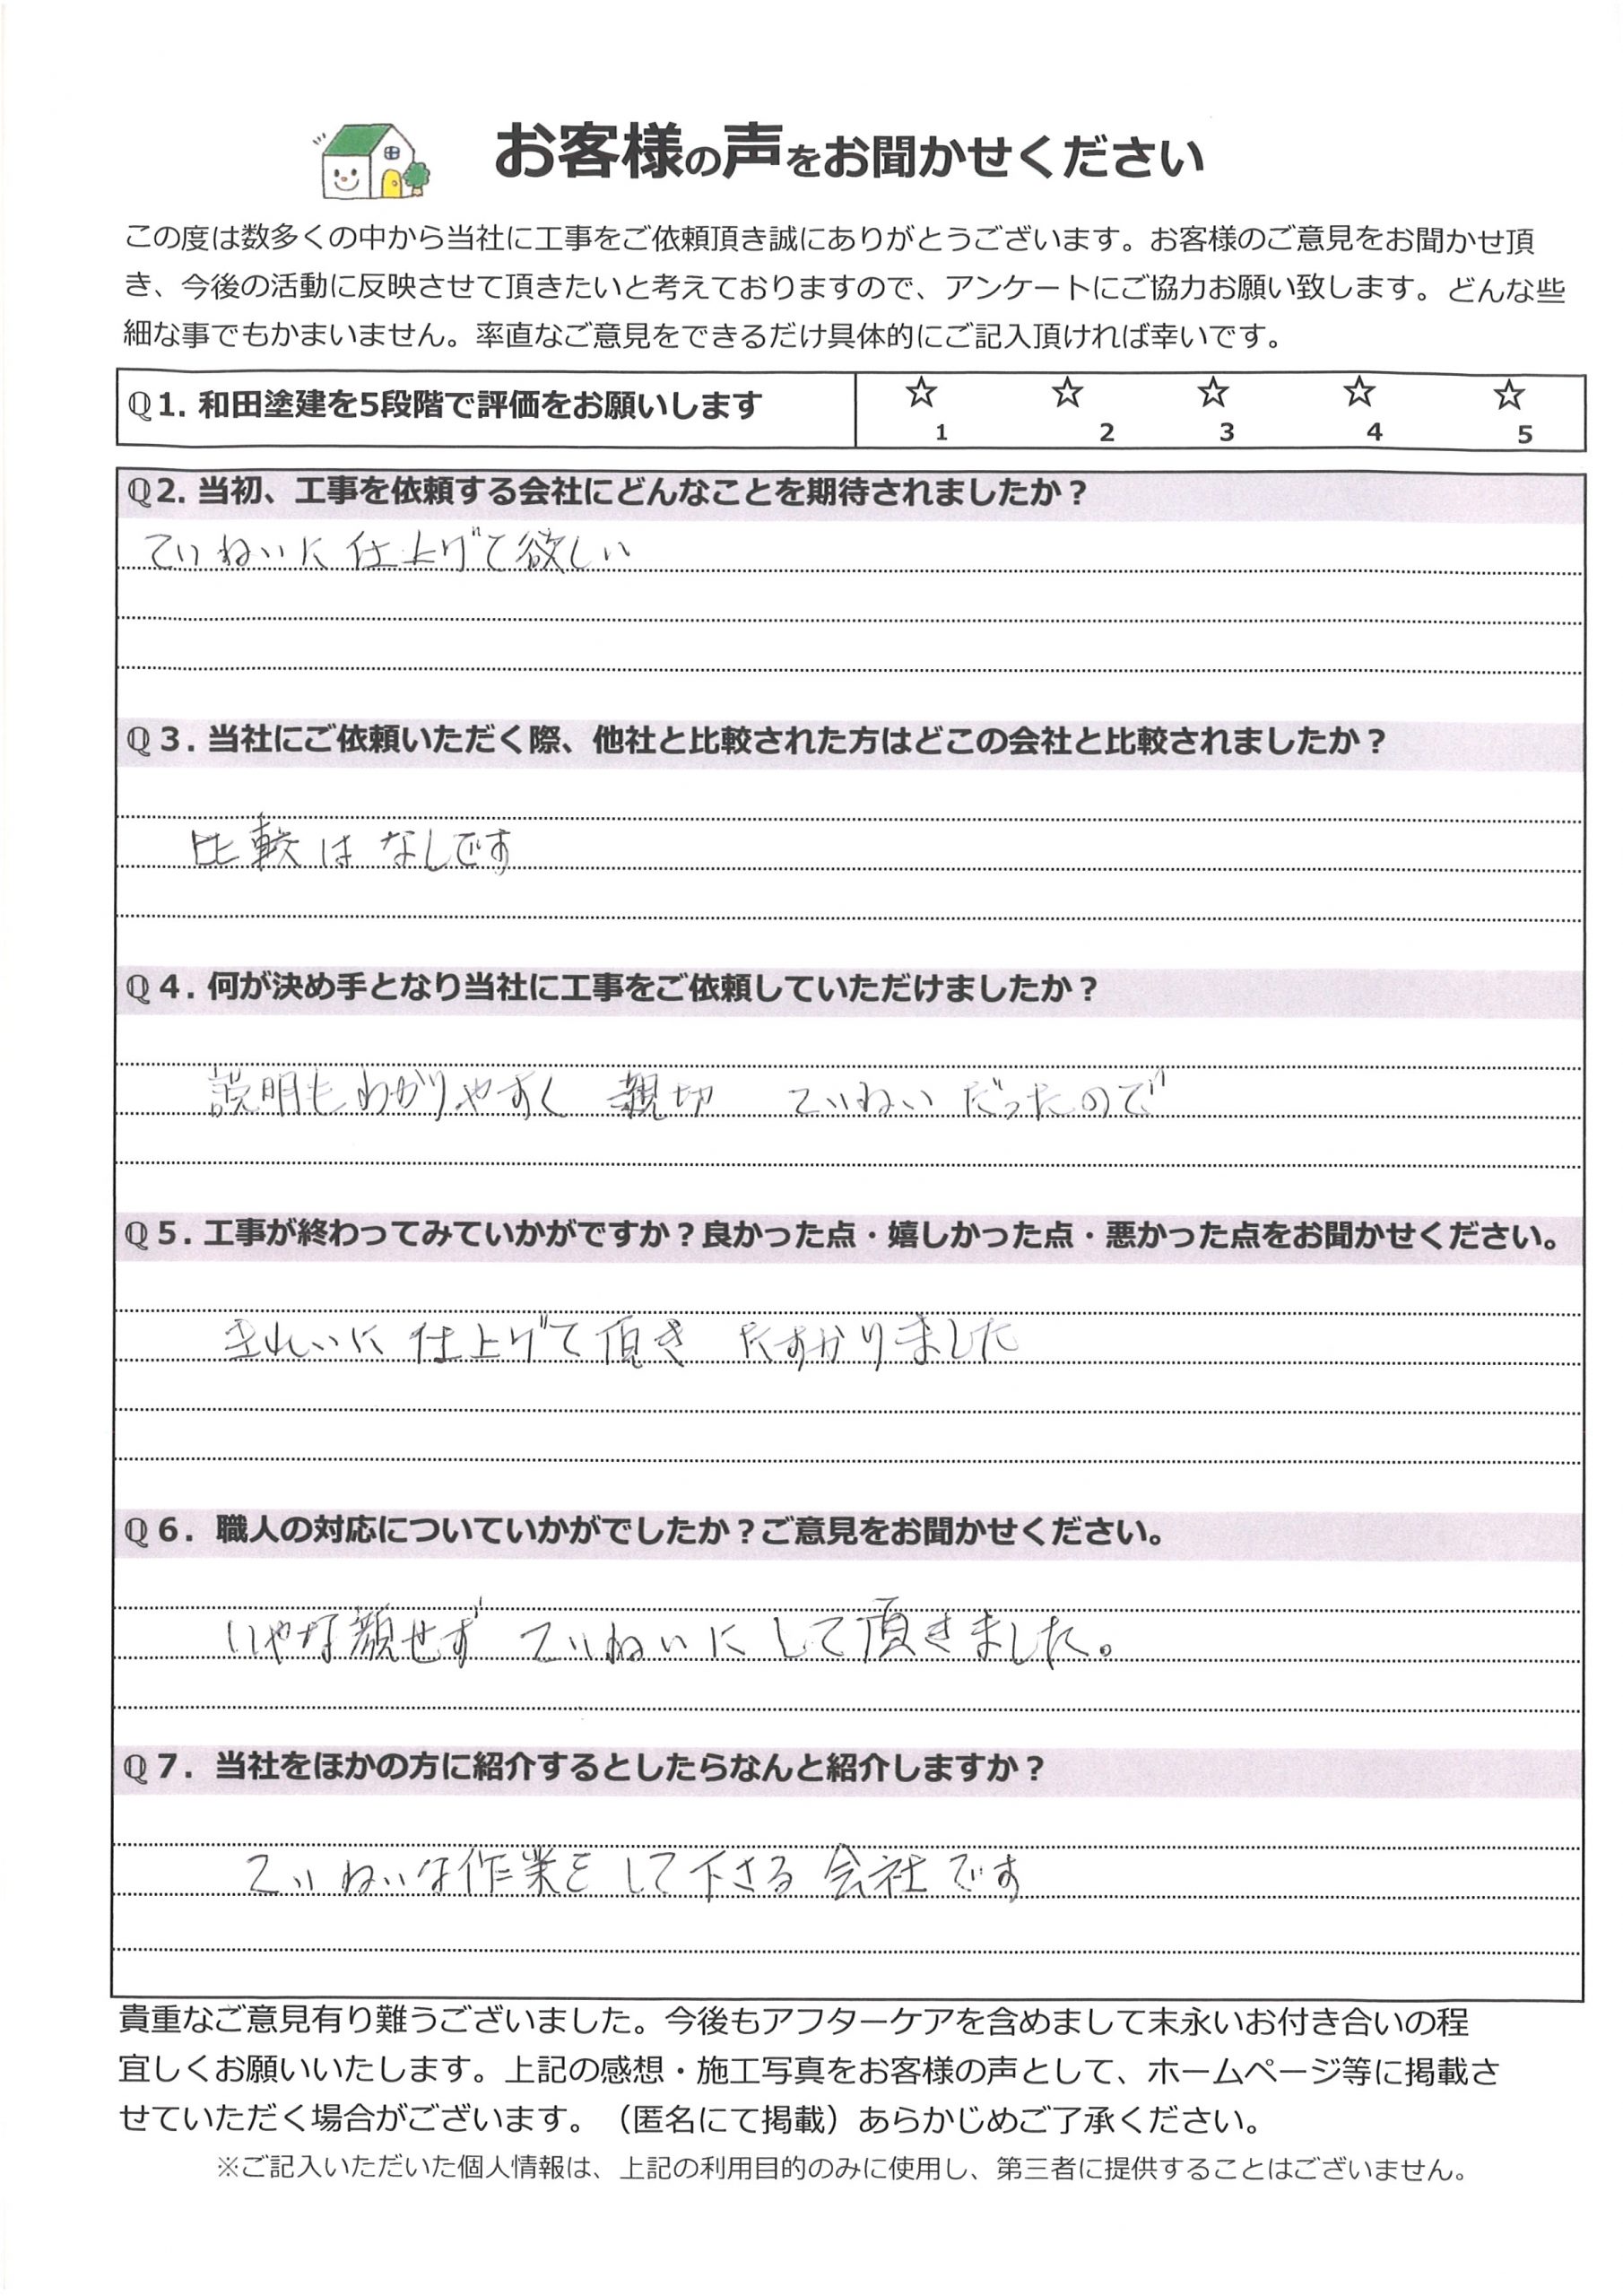 お客様の声をお聞かせください
この度は数多くの中から当社に工事をご依頼頂き誠にありがとうございます。お客様のご意見をお聞かせ頂
き、今後の活動に反映させて頂きたいと考えておりますので、アンケートにご協力お願い致します。どんな些
細な事でもかまいません。率直なご意見をできるだけ具体的にご記入頂ければ幸いです。
Q1. 和田塗建を5段階で評価をお願いします
☆ ☆ ☆ ☆ ☆
1 2 3 4 5
Q2. 当初、工事を依頼する会社にどんなことを期待されましたか？
ていねいに仕上げて欲しい
Q３. 当社にご依頼いただく際、他社と比較された方はどこの会社と比較されましたか？
比較は なしです
Q４. 何が決め手となり当社に工事をご依頼していただけましたか？
説明もわかりやすく 親切 ていねいだったので
Q５. 工事が終わってみていかがですか？良かった点・嬉しかった点・悪かった点をお聞かせください。
きれいに仕上げて頂き たすかりました
Q６. 職人の対応についていかがでしたか？ご意見をお聞かせください。
いやな顔せず ていねいに して頂きました。
Q７. 当社をほかの方に紹介するとしたらなんと紹介しますか？
ていねいな作業を して下さる 会社です
貴重なご意見有り難うございました。今後もアフターケアを含めまして末永いお付き合いの程
宜しくお願いいたします。上記の感想・施工写真をお客様の声として、ホームページ等に掲載さ
せていただく場合がございます。（匿名にて掲載）あらかじめご了承ください。
※ご記入いただいた個人情報は、上記の利用目的のみに使用し、第三者に提供することはございません。